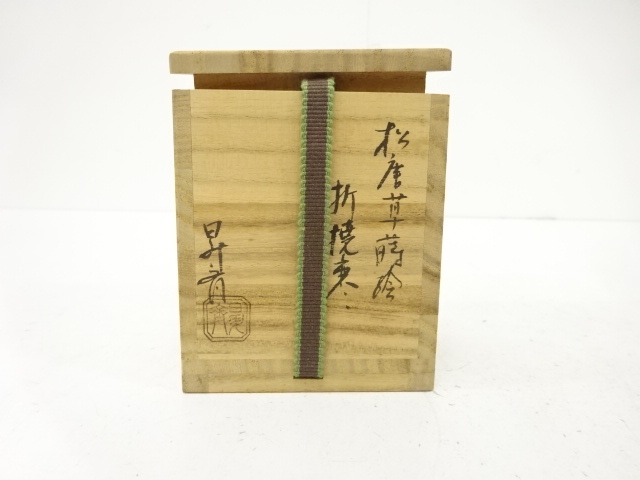 松唐草蒔絵
折撓棗
昇斎